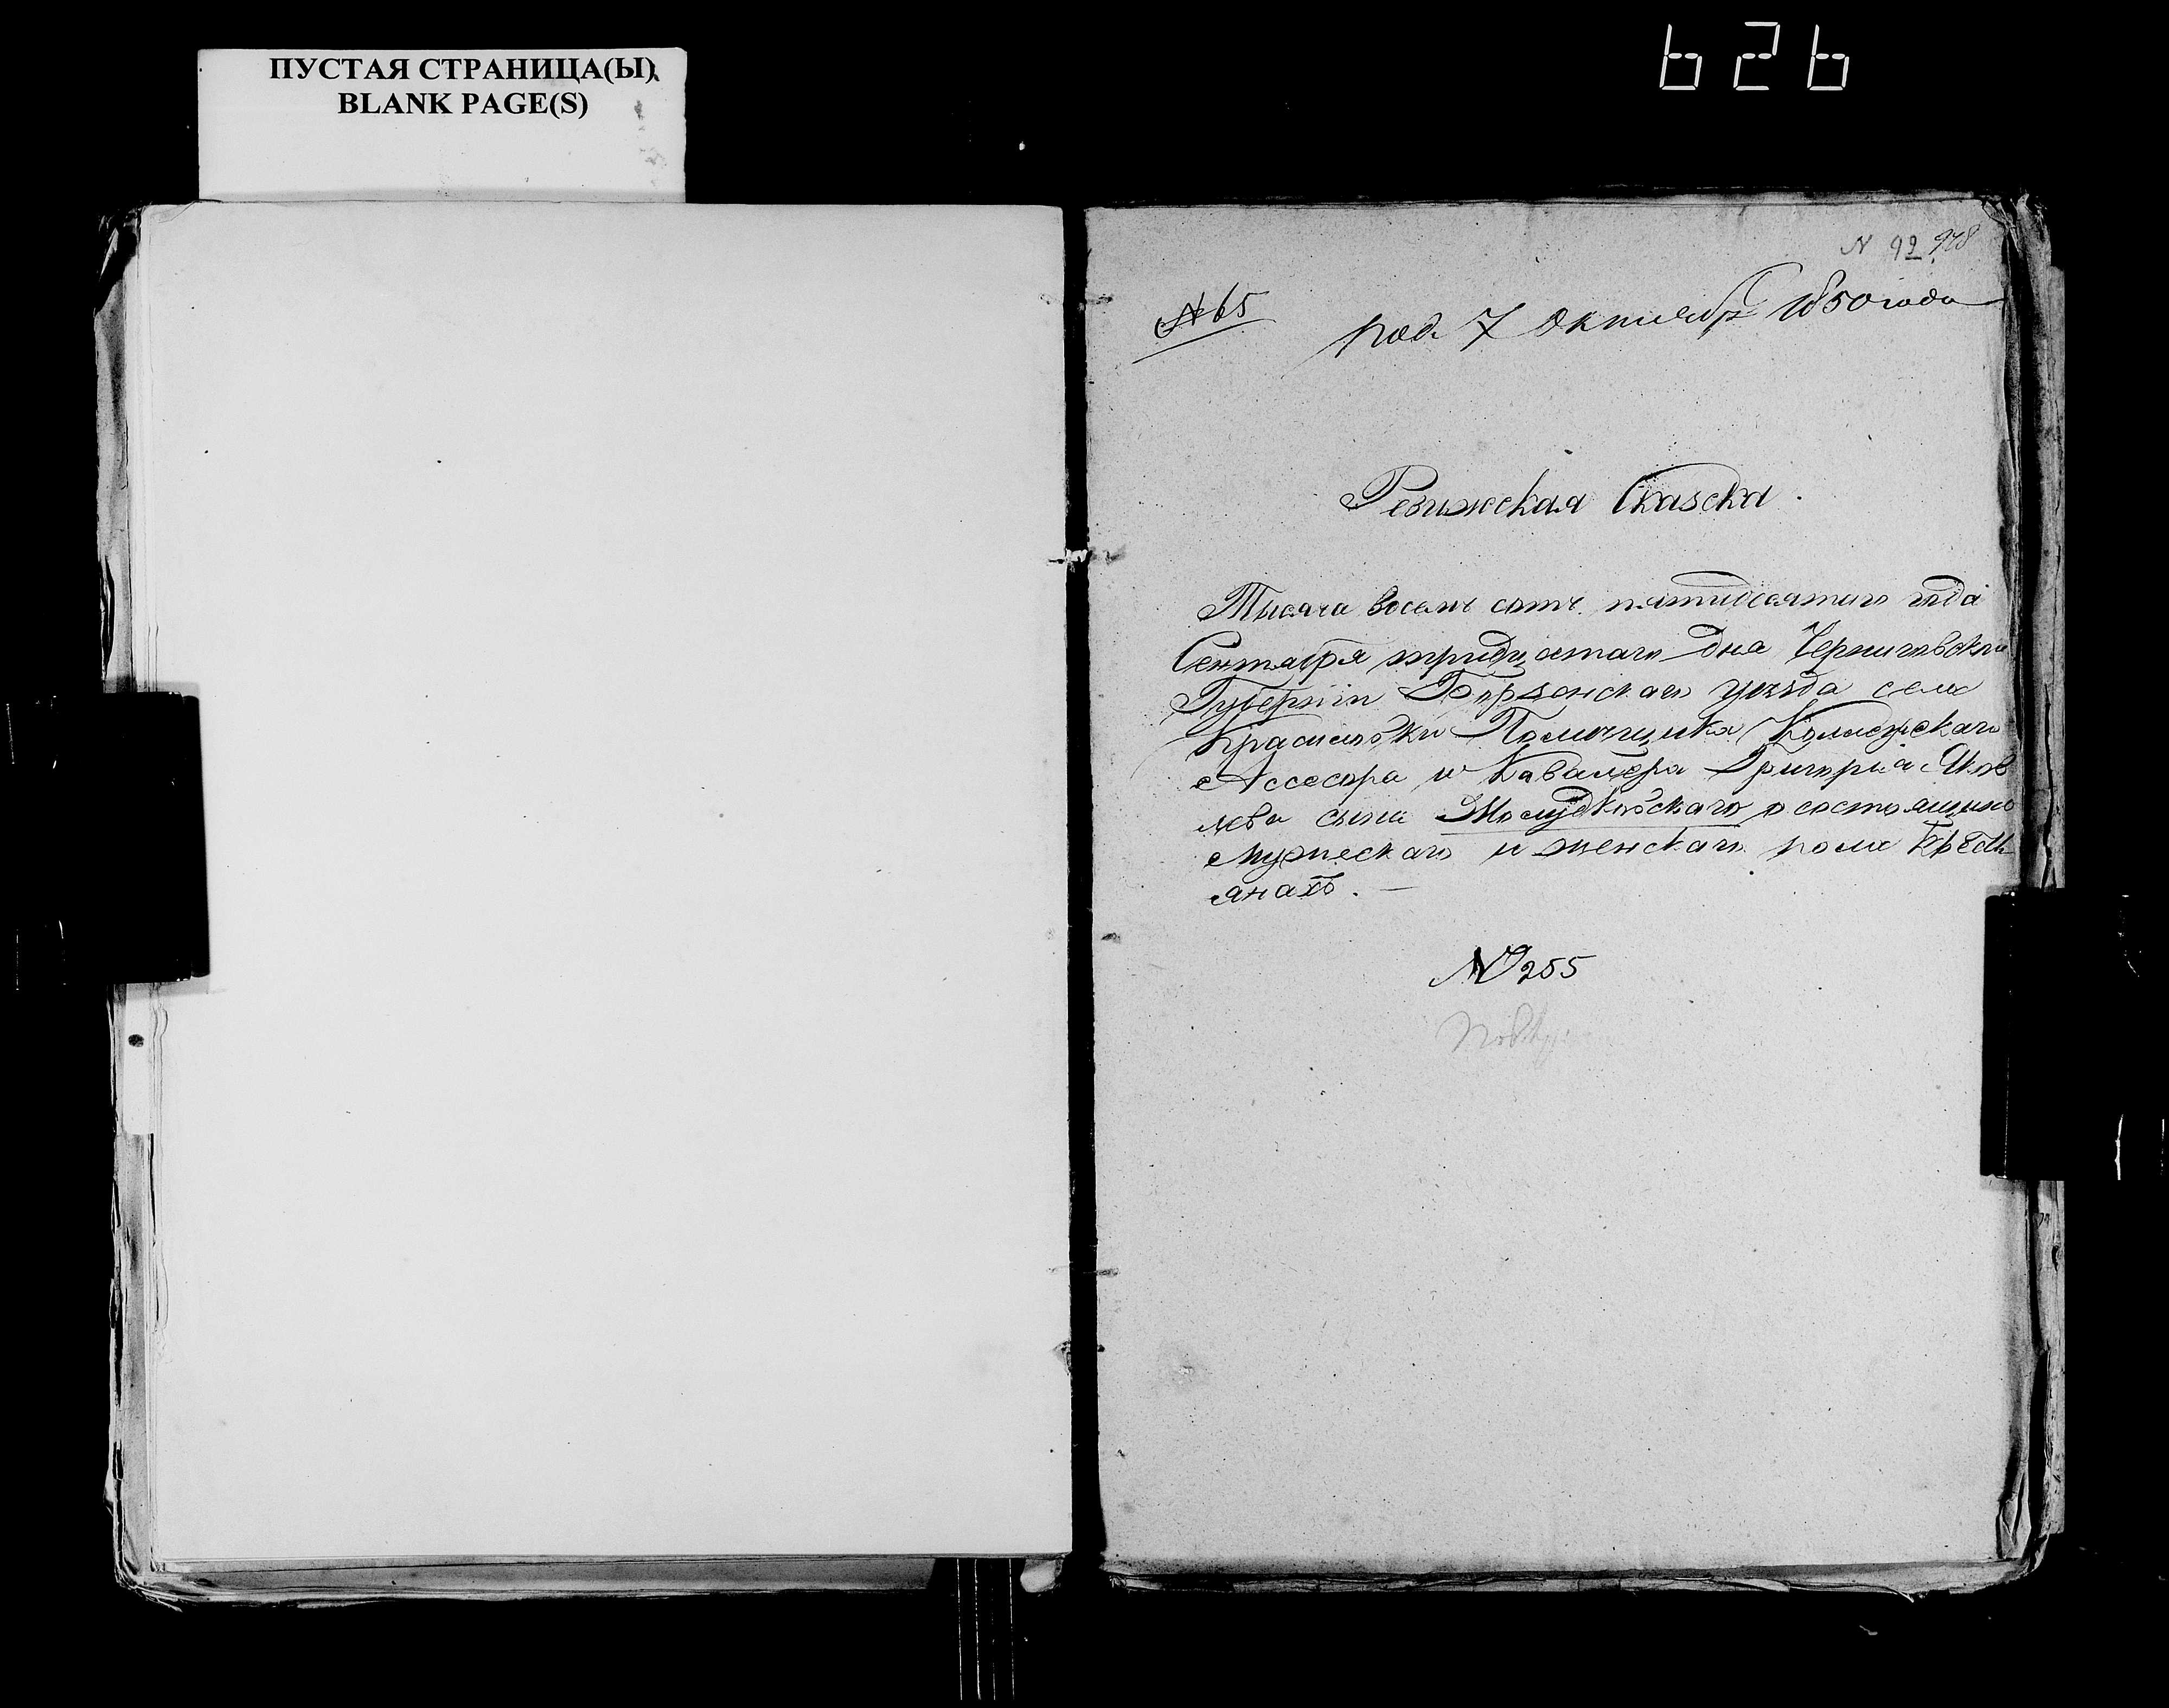 ПУСТАЯ СТРАНИЦА(Ы)
BLANK PAGE(S)
626
N 92 928
№ 65
под. 7 Октября 1850 года
Ревижская Сказска.
Тысяча восемь сотъ пятидесятаго года
Сентября тридцатаго дня Черниговской
Губерніи Борзенскаго уезда села
Красиловки Помещика Колежскаго
Ассесора и Кавалера Григорія Яков
лева сына о состоящихъ
мужескаго и женскаго пола Крестъ
янахъ. —
№ 255